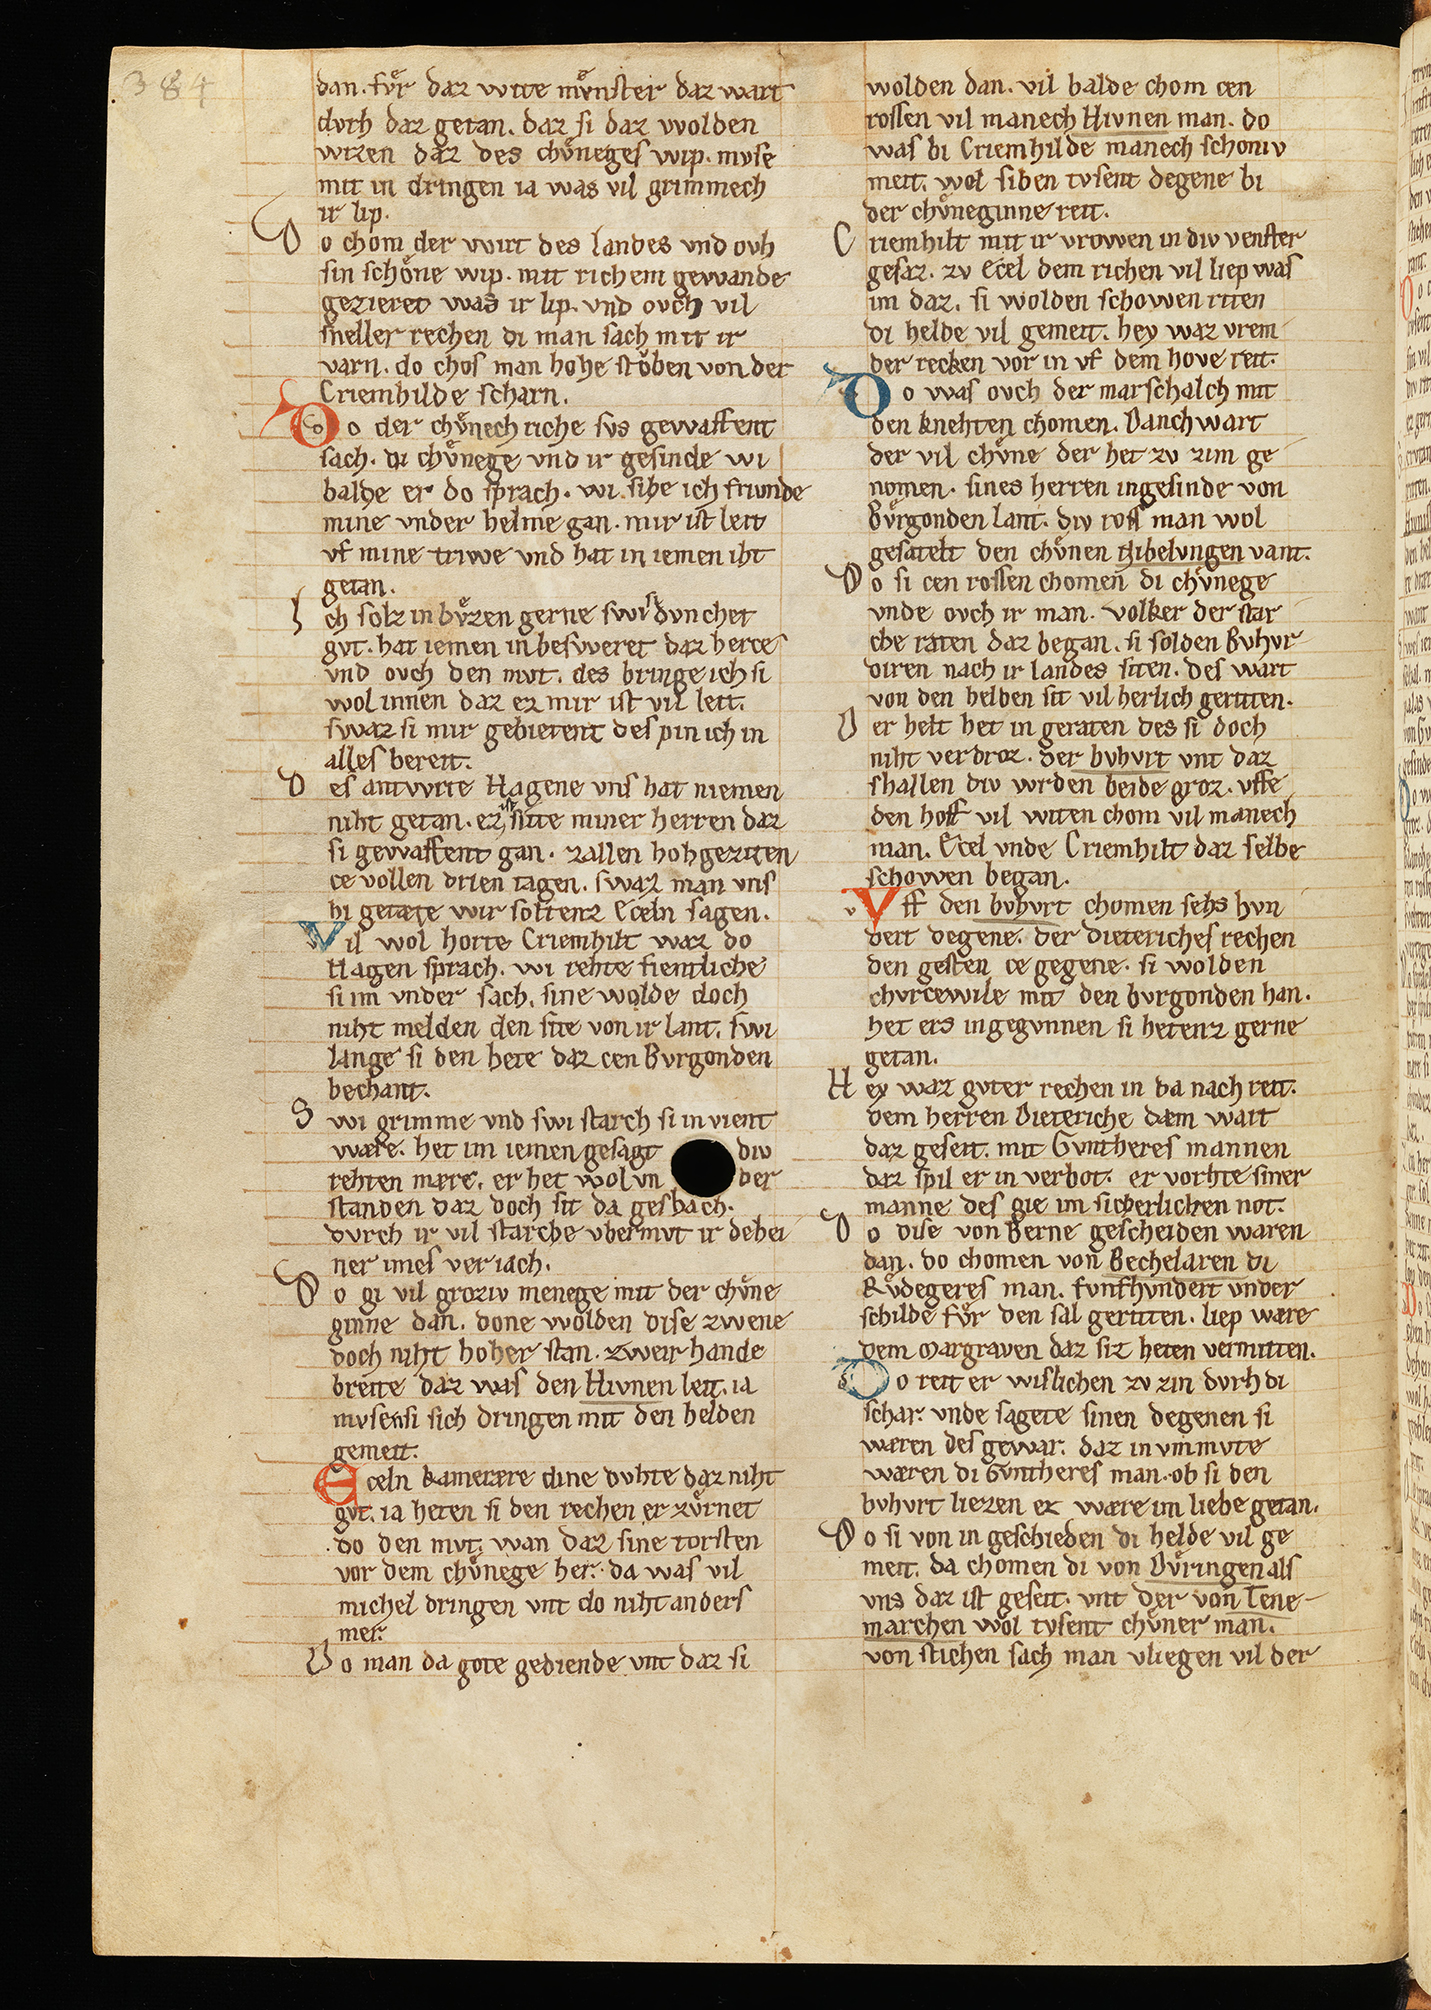 384
dan. fvͤr daz wite mvͤnster daz wart
dvrh daz getan. daz si daz wolden
wizen daz des chvͤneges wip. mvse
mit in dringen ia was vil grimmech
ir lip.
Do chom der wirt des landes vnd ovh
sin schoͤne wip. mit richem gewande
gezieret was ir lip. vnd ovch vil
sneller rechen di man sach mit ir
varn. do chos man hohe stoͤben von der
Criemhilde scharn.
Do der chvͤnech riche svs gewaffent
sach. di chvͤnege vnd ir gesinde wi
balde er do sprach. wi sihe ich friunde
mine vnder helme gan. mir ist leit
vf mine triwe vnd hat in iemen iht
getan.
Ich solz in bvͤzen gerne swi si dvnchet
gvt. hat iemen in beswæret daz herce
vnd ovch den mvt. des bringe ich si
wol innen daz ez mir ist vil leit.
swaz si mir gebietent des pin ich in
alles bereit.
Des antwrte Hagene vns hat niemen
niht getan. ez ist site miner herren daz
si gewaffent gan. zallen hohgeziten
ce vollen drien tagen. swaz man vns
hi getæte wir soltenz Eceln sagen.
Vil wol horte Criemhilt waz do
Hagen sprach. wi rehte fientliche
si im vnder sach. sine wolde doch
niht melden den site von ir lant. swi
lange si den hete daz cen Bvrgonden
bechant.
Swi grimme vnd swi starch si in vient
wære. het im iemen gesagt div
rehten mære. er het wol vn der
standen daz doch sit da geshach.
dvrch ir vil starche vbermvt ir dehei
ner imes veriach.
Do gi vil groziv menege mit der chvͤne
ginne dan. done wolden dise zwene
doch niht hoher stan. zweir hande
breite daz was den Hivnen leit. ia
mvsen si sich dringen mit den helden
gemeit.
Eceln kamerære dine dvhte daz niht
gvt. ia heten si den rechen er zvͤrnet
do den mvt. wan daz sine torsten
vor dem chvͤnege her. da was vil
michel dringen vnt do niht anders
mer.
Do man da gote gediende vnt daz si
wolden dan. vil balde chom cen
rossen vil manech Hivnen man. do
was bi Criemhilde manech schoniv
meit. wol siben tvsent degene bi
der chvͤneginne reit.
Criemhilt mit ir vrowen in div venster
gesaz. zv Ecel dem richen vil liep was
im daz. si wolden schowen riten
di helde vil gemeit. hey waz vrem
der recken vor in vf dem hove reit.
Do was ovch der marschalch mit
den knehten chomen. Danchwart
der vil chvͤne der het zv zim ge
nomen. sines herren ingesinde von
Bvͤrgonden lant. div ross man wol
gesatelt den chvͤnen Nibelvngen vant.
Do si cen rossen chomen di chvͤnege
vnde ovch ir man. volker der star
che raten daz began. si solden Bvhvr
diren nach ir landes siten. des wart
von den helden sit vil herlich geriten.
Der helt het in geraten des si doch
niht verdroz. der bvhvrt vnt daz
shallen div wrden beide groz. vffe
den hoff vil witen chom vil manech
man. Ecel vnde Criemhilt daz selbe
schowen began.
Vff den bvhvrt chomen sehs hvn
dert degene. der dieteriches rechen
den gesten ce gegene. si wolden
chvrcewile mit den bvrgonden han.
het ers in gegvnnen si hetenz gerne
getan.
Hey waz gvter rechen in da nach reit.
dem herren Dieteriche dæm wart
daz geseit. mit Gvntheres mannen
daz spil er in verbot. er vorhte siner
manne des gie im sicherlichen not.
Do dise von Berne gescheiden waren
dan. do chomen von Bechelaren di
Rvͤdegeres man. fvnfhvndert vnder
schilde fvͤr den sal geritten. liep ware
dem margraven daz siz heten vermitten.
Do reit er wislichen zv zin dvrh di
schar. vnde sagete sinen degenen si
wæren des gewar. daz in vnmvte
wæren di Gvntheres man. ob si den
bvhvrt liezen ez wære im liebe getan.
Do si von in geschieden di helde vil ge
meit. da chomen di von Dvͤringen als
vns daz ist geseit. vnt der von Tene
marchen wol tvsent chvͤner man.
von stichen sach man vliegen vil der